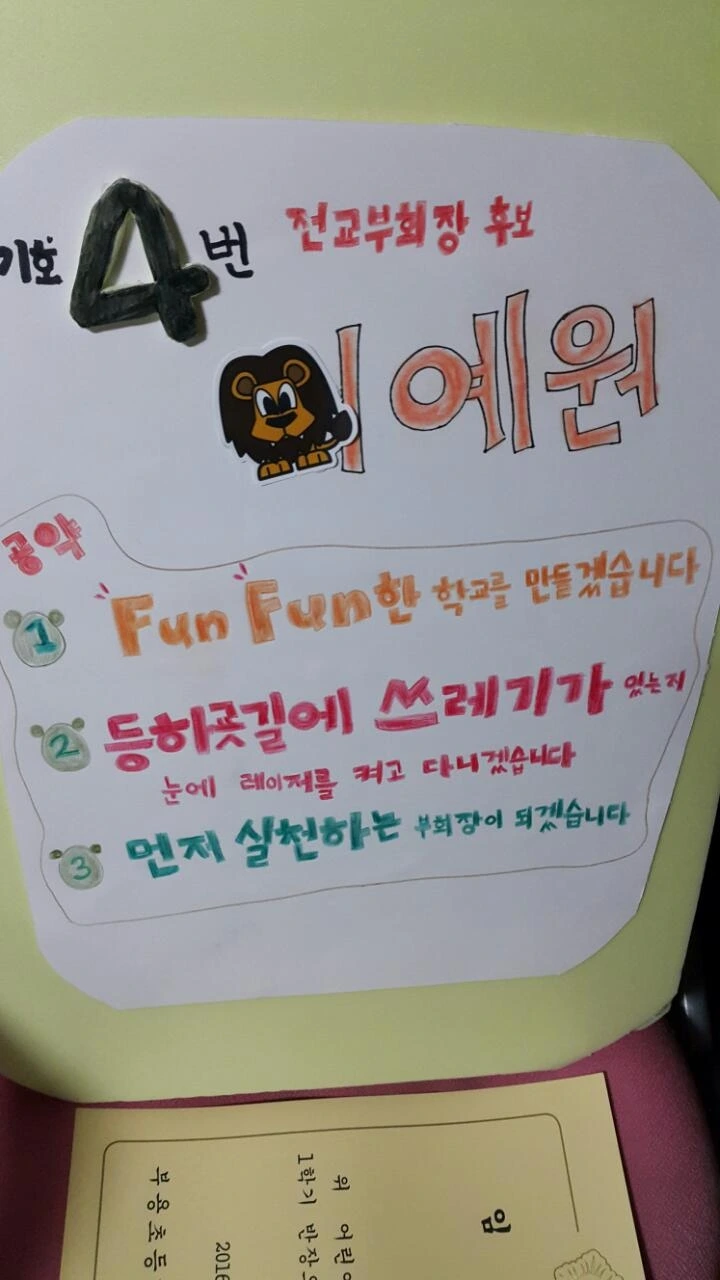 기호 4번 전교부회장 후보
예원
공약
1 "Fun Fun한 학교를 만들겠습니다
2 등하굣길에 쓰레기가 있는지
눈에 레이저를 켜고 다니겠습니다
3 먼저 실천하는 부회장이 되겠습니다
임
위 어린이
1학기 반장으
2016
부용초등